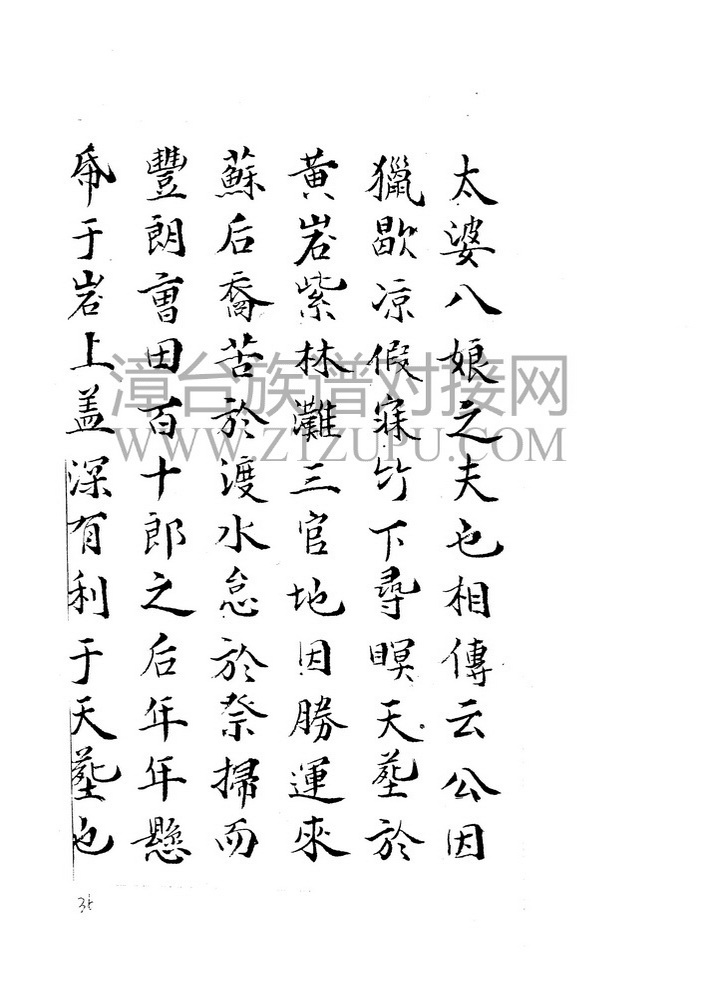 太婆八娘之夫也相傳云公因
獵歇凉假寐竹下尋暝天塟於
黃岩紫林灘三官地因勝運來
蘇后裔苦於渡水怠於祭掃而
豐朗曺田百十郎之后年年懸
帋于岩上盖深有利于天塟也
漳台族谱对接网
WWW.ZTZUPU.COM